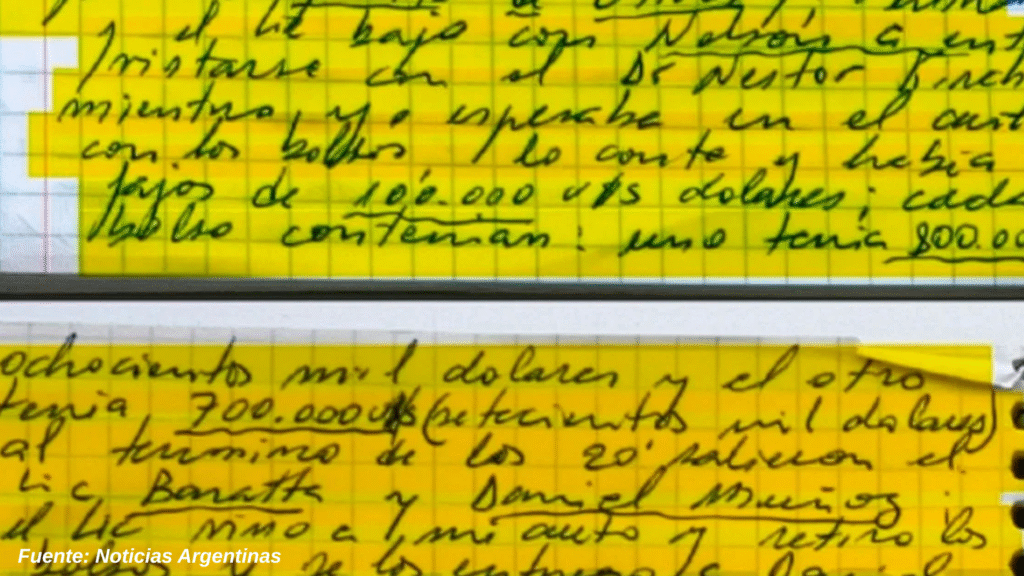 el Lic bajo con Nelson G
con el Dr Nestor
mientras yo esperaba en el
con los bolsos / lo conte y habia
fajos de 100.000 u/s dolares; cada
bolso contenian: uno tenia 800.00
ochocientos mil dolares y el otro
tenia 700.000 u/s (setecientos mil dolares)
al termino de los 20' salieron el
Lic Baratta y Daniel Muñoz;
el Lic vino a mi auto y retiro los
bolsos y se los
Fuente: Noticias Argentinas